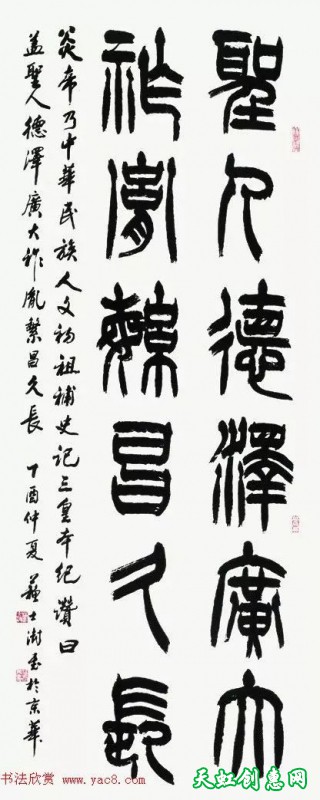 聖人德澤廣大
祚胤繁昌久長
炎帝乃中華民族人文初祖補史記三皇本紀讚曰
蓋聖人德澤廣大祚胤繁昌久長 丁酉仲夏 蘇士澍書於京華
书法欣赏
www.yac8.com
天虹创惠网